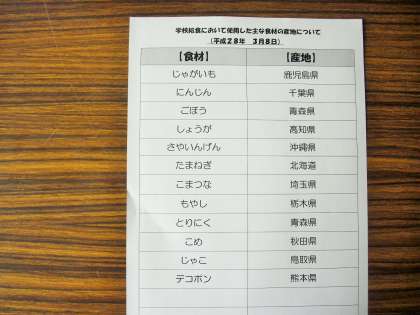 学校給食において使用した主な食材の産地について
(平成28年 3月8日)
【食材】 【産地】
じゃがいも 鹿児島県
にんじん 千葉県
ごぼう 青森県
しょうが 高知県
さやいんげん 沖縄県
たまねぎ 北海道
こまつな 埼玉県
もやし 栃木県
とりにく 青森県
こめ 秋田県
じゃこ 鳥取県
デコポン 熊本県